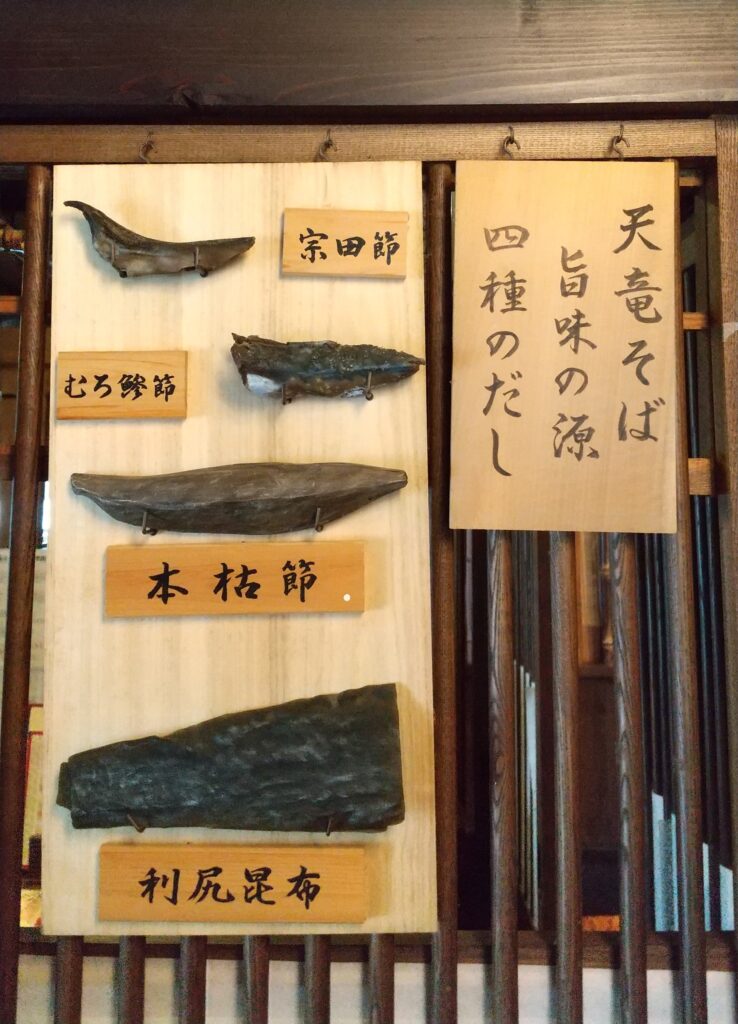 天竜そば
旨味の源
四種のだし
宗田節
むろ鰺節
本枯節
利尻昆布